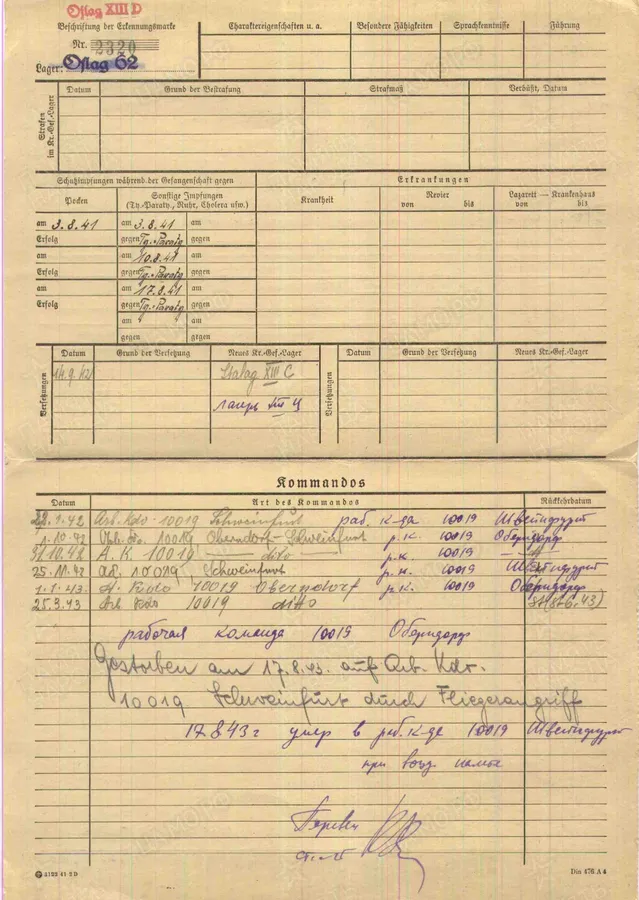 Oflag XIII D
Beschriftung der Erkennungsmarke
Nr. 2320
Lager: Oflag 62
Charaktereigenschaften u. a.
Besondere Fähigkeiten
Sprachkenntnisse
Führung
Strafen im Kr.-Gef.-Lager
Datum
Grund der Bestrafung
Strafmaß
Verbüßt, Datum
Schutzimpfungen während der Gefangenschaft gegen
Erkrankungen
Pocken
Sonstige Impfungen
(Ty.-Paraty., Ruhr, Cholera usw.)
Krankheit
Revier
von bis
Lazarett — Krankenhaus
von bis
am 3.8.41 am 3.8.41 am
Erfolg gegen Ty.-Paraty gegen
am am 10.8.41 am
Erfolg gegen Ty.-Paraty gegen
am am 17.8.41 am
Erfolg gegen Ty.-Paraty gegen
am am
gegen gegen
Versetzungen
Datum Grund der Versetzung Neues Kr.-Gef.-Lager
14.9.42 Stalag XIII C
лагерь XIII Ц
Versetzungen
Datum Grund der Versetzung Neues Kr.-Gef.-Lager
Kommandos
Datum Art des Kommandos Rückkehrdatum
1.42 Arb. Kdo 10019 Schweinfurt раб. к-да 10019 Швейнфурт
1.10.42 10019 Oberndorf-Schweinfurt р.к. 10019 Оберндорф
31.10.42 A.K 10019 — dito р.к. 10019
25.11.42 10019 Schweinfurt р.к. 10019 Швейнфурт
1.1.43 A. Kdo 10019 Oberndorf р.к. 10019 Оберндорф
25.3.43 Arb Kdo 10019 ditto
рабочая команда 10019 Оберндорф
Gestorben am 17.8.43. auf Arb. Kdo.
10019 Schweinfurt durch Fliegerangriff
17 8 43 г умер в раб. к-де 10019 Швейнфурт
при возд. налете
Перевел
3123 41 2 D
Din 476 A 4